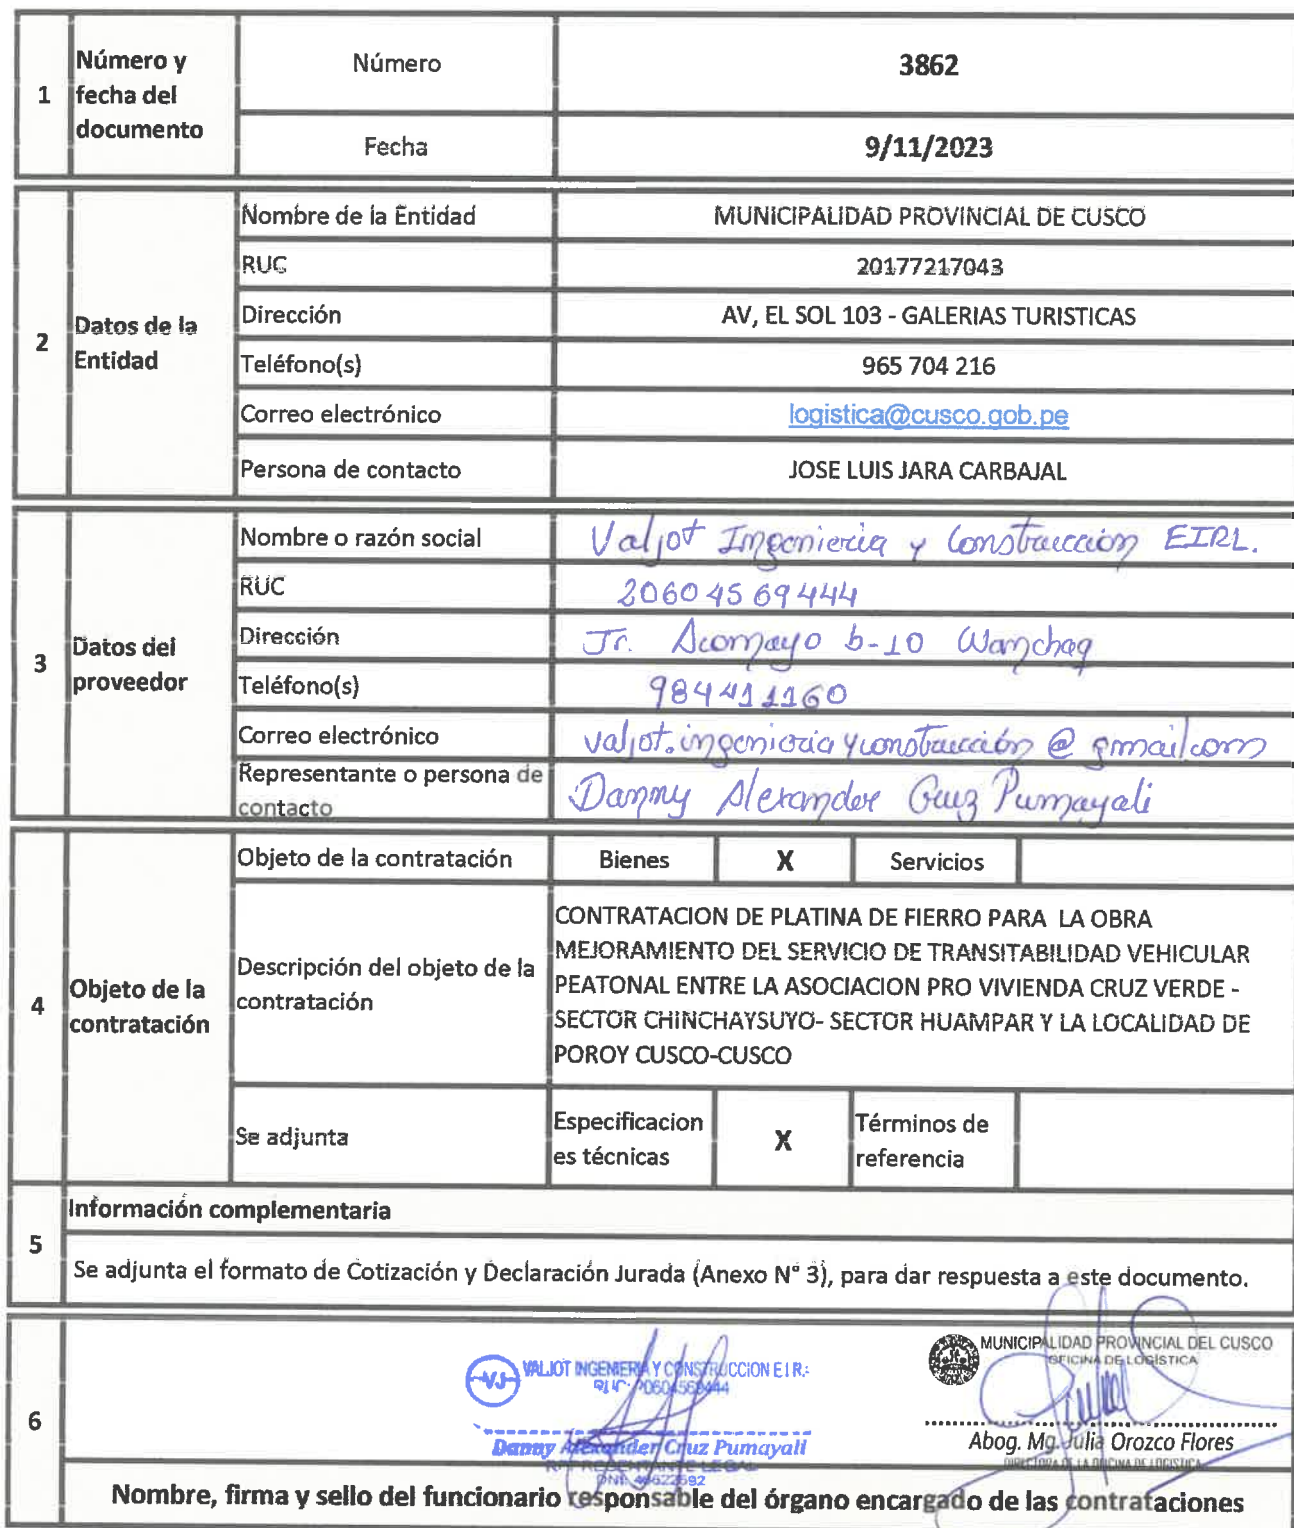 1
Número y
fecha del
documento
Número
3862
Fecha
9/11/2023
2
Datos de la
Entidad
Nombre de la Entidad
MUNICIPALIDAD PROVINCIAL DE CUSCO
RUC
20177217043
Dirección
AV, EL SOL 103 - GALERIAS TURISTICAS
Teléfono(s)
965 704 216
Correo electrónico
logistica@cusco.gob.pe
Persona de contacto
JOSE LUIS JARA CARBAJAL
3
Datos del
proveedor
Nombre o razón social
Valjot Ingenieria y Construccion EIRL.
RUC
20604569444
Dirección
Jr. Acomayo b-10 Wanchaq
Teléfono(s)
984411160
Correo electrónico
valjot.ingenieria y construcción @ gmail.com
Representante o persona de
contacto
Danny Alexander Cruz Pumayali
4
Objeto de la
contratación
Objeto de la contratación
Bienes X Servicios
Descripción del objeto de la
contratación
CONTRATACION DE PLATINA DE FIERRO PARA LA OBRA
MEJORAMIENTO DEL SERVICIO DE TRANSITABILIDAD VEHICULAR
PEATONAL ENTRE LA ASOCIACION PRO VIVIENDA CRUZ VERDE -
SECTOR CHINCHAYSUYO- SECTOR HUAMPAR Y LA LOCALIDAD DE
POROY CUSCO-CUSCO
Se adjunta
Especificacion
es técnicas
X
Términos de
referencia
5
Información complementaria
Se adjunta el formato de Cotización y Declaración Jurada (Anexo N° 3), para dar respuesta a este documento.
6
VJ
VALJOT INGENIERIA Y CONSTRUCCION E I R.
RUC: 20604569444
Danny Alexander Cruz Pumayali
REPRESENTANTE LEGAL
DNI.
MUNICIPALIDAD PROVINCIAL DEL CUSCO
OFICINA DE LOGÍSTICA
Abog. Mg. Julia Orozco Flores
DIRECTORA DE LA OFICINA DE LOGISTICA
Nombre, firma y sello del funcionario responsable del órgano encargado de las contrataciones